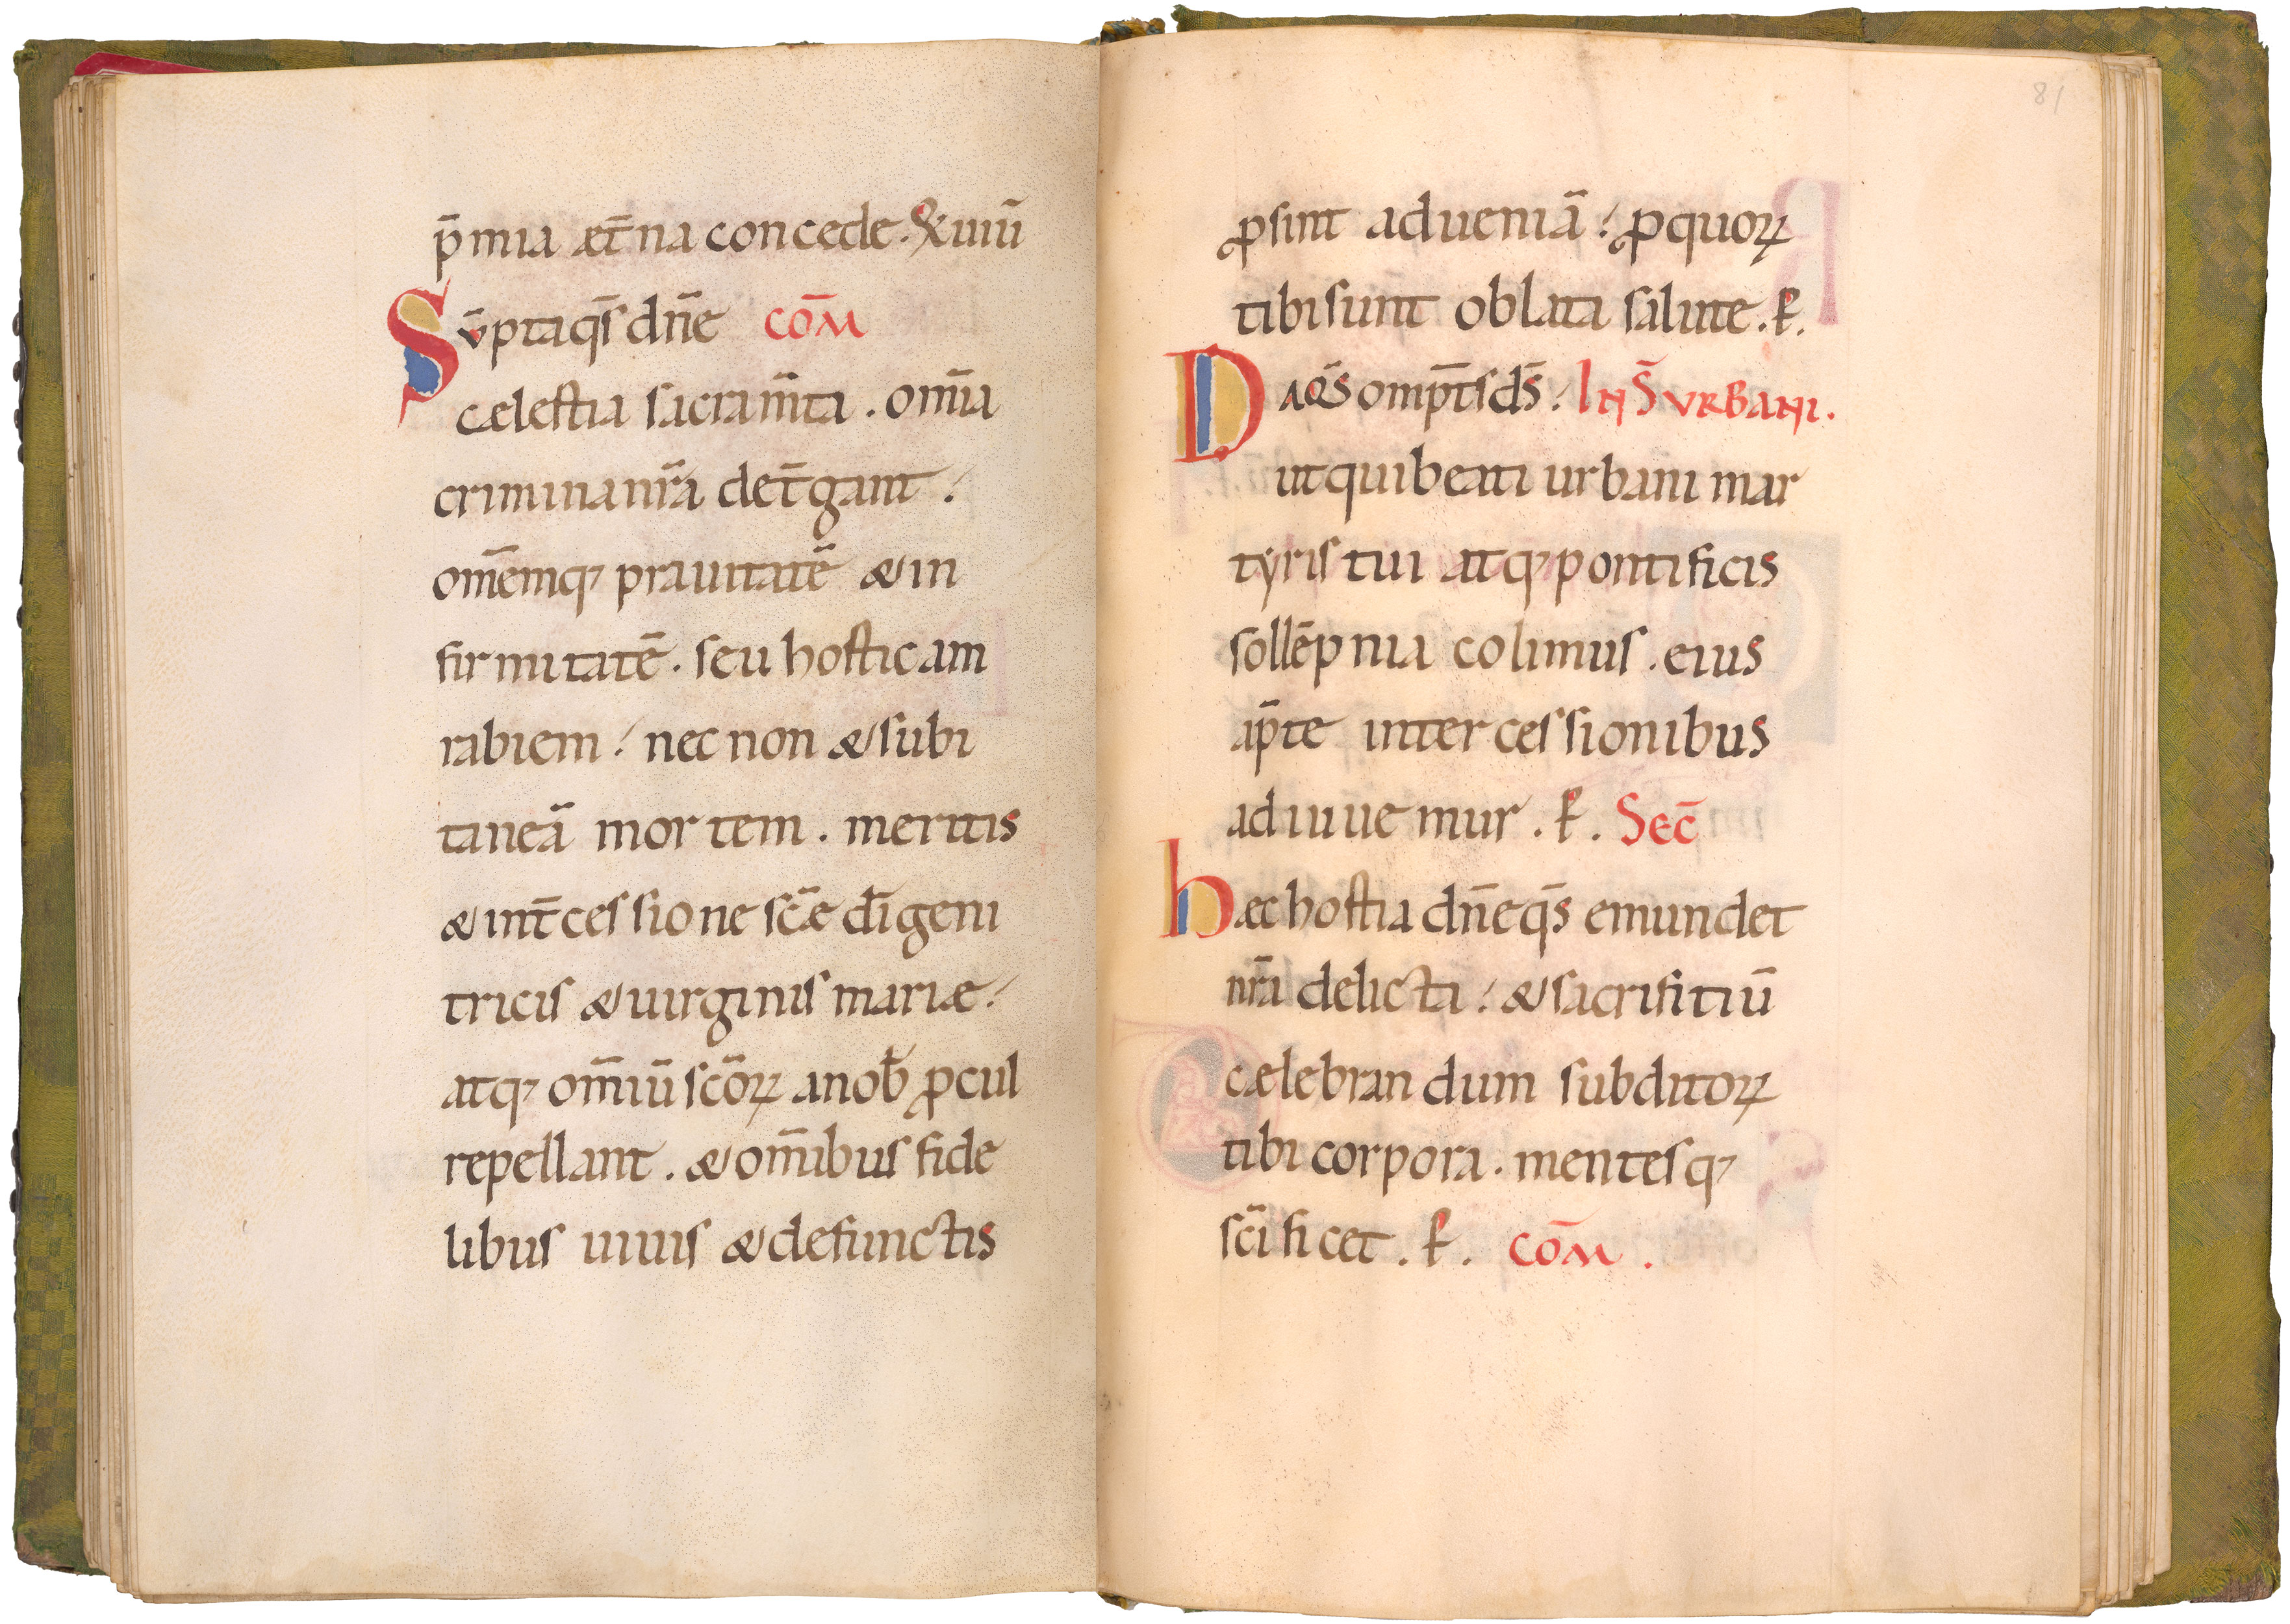 p̄mia æt̄na concede. Ꝑ uiuū
Sv̄ptaq̄s dn̄e cōm
cælestia sacram̄ta. om̄ia
crimina nr̄a det̄gant.
om̄emq; prauitatē & in
firmitatē. seu hosticam
rabiem. necnon & subi
taneā mortem. meritis
& int̄cessione sc̄æ dī geni
tricis & uirginis mariæ.
atq; om̄iū sc̄oꝝ a nob̄ ꝓcul
repellant. & om̄ibus fide
libus uiuis & defunctis
81
ꝓsint ad ueniā. ꝓ quoꝝ
tibi sunt oblata salute. P.
Da q̄s omp̄ts ds̄. In S̄ vrbani.
ut qui beati urbani mar
tyris tui atq; pontificis
sollēpnia colimus. eius
ap̄te intercessionibus
adiuuemur. P. Sec̄
hæc hostia dn̄e q̄s emundet
nr̄a delicta. & sacrifitiū
cælebrandum subditoꝝ
tibi corpora. mentesq;
sc̄ificet. P. cōm.